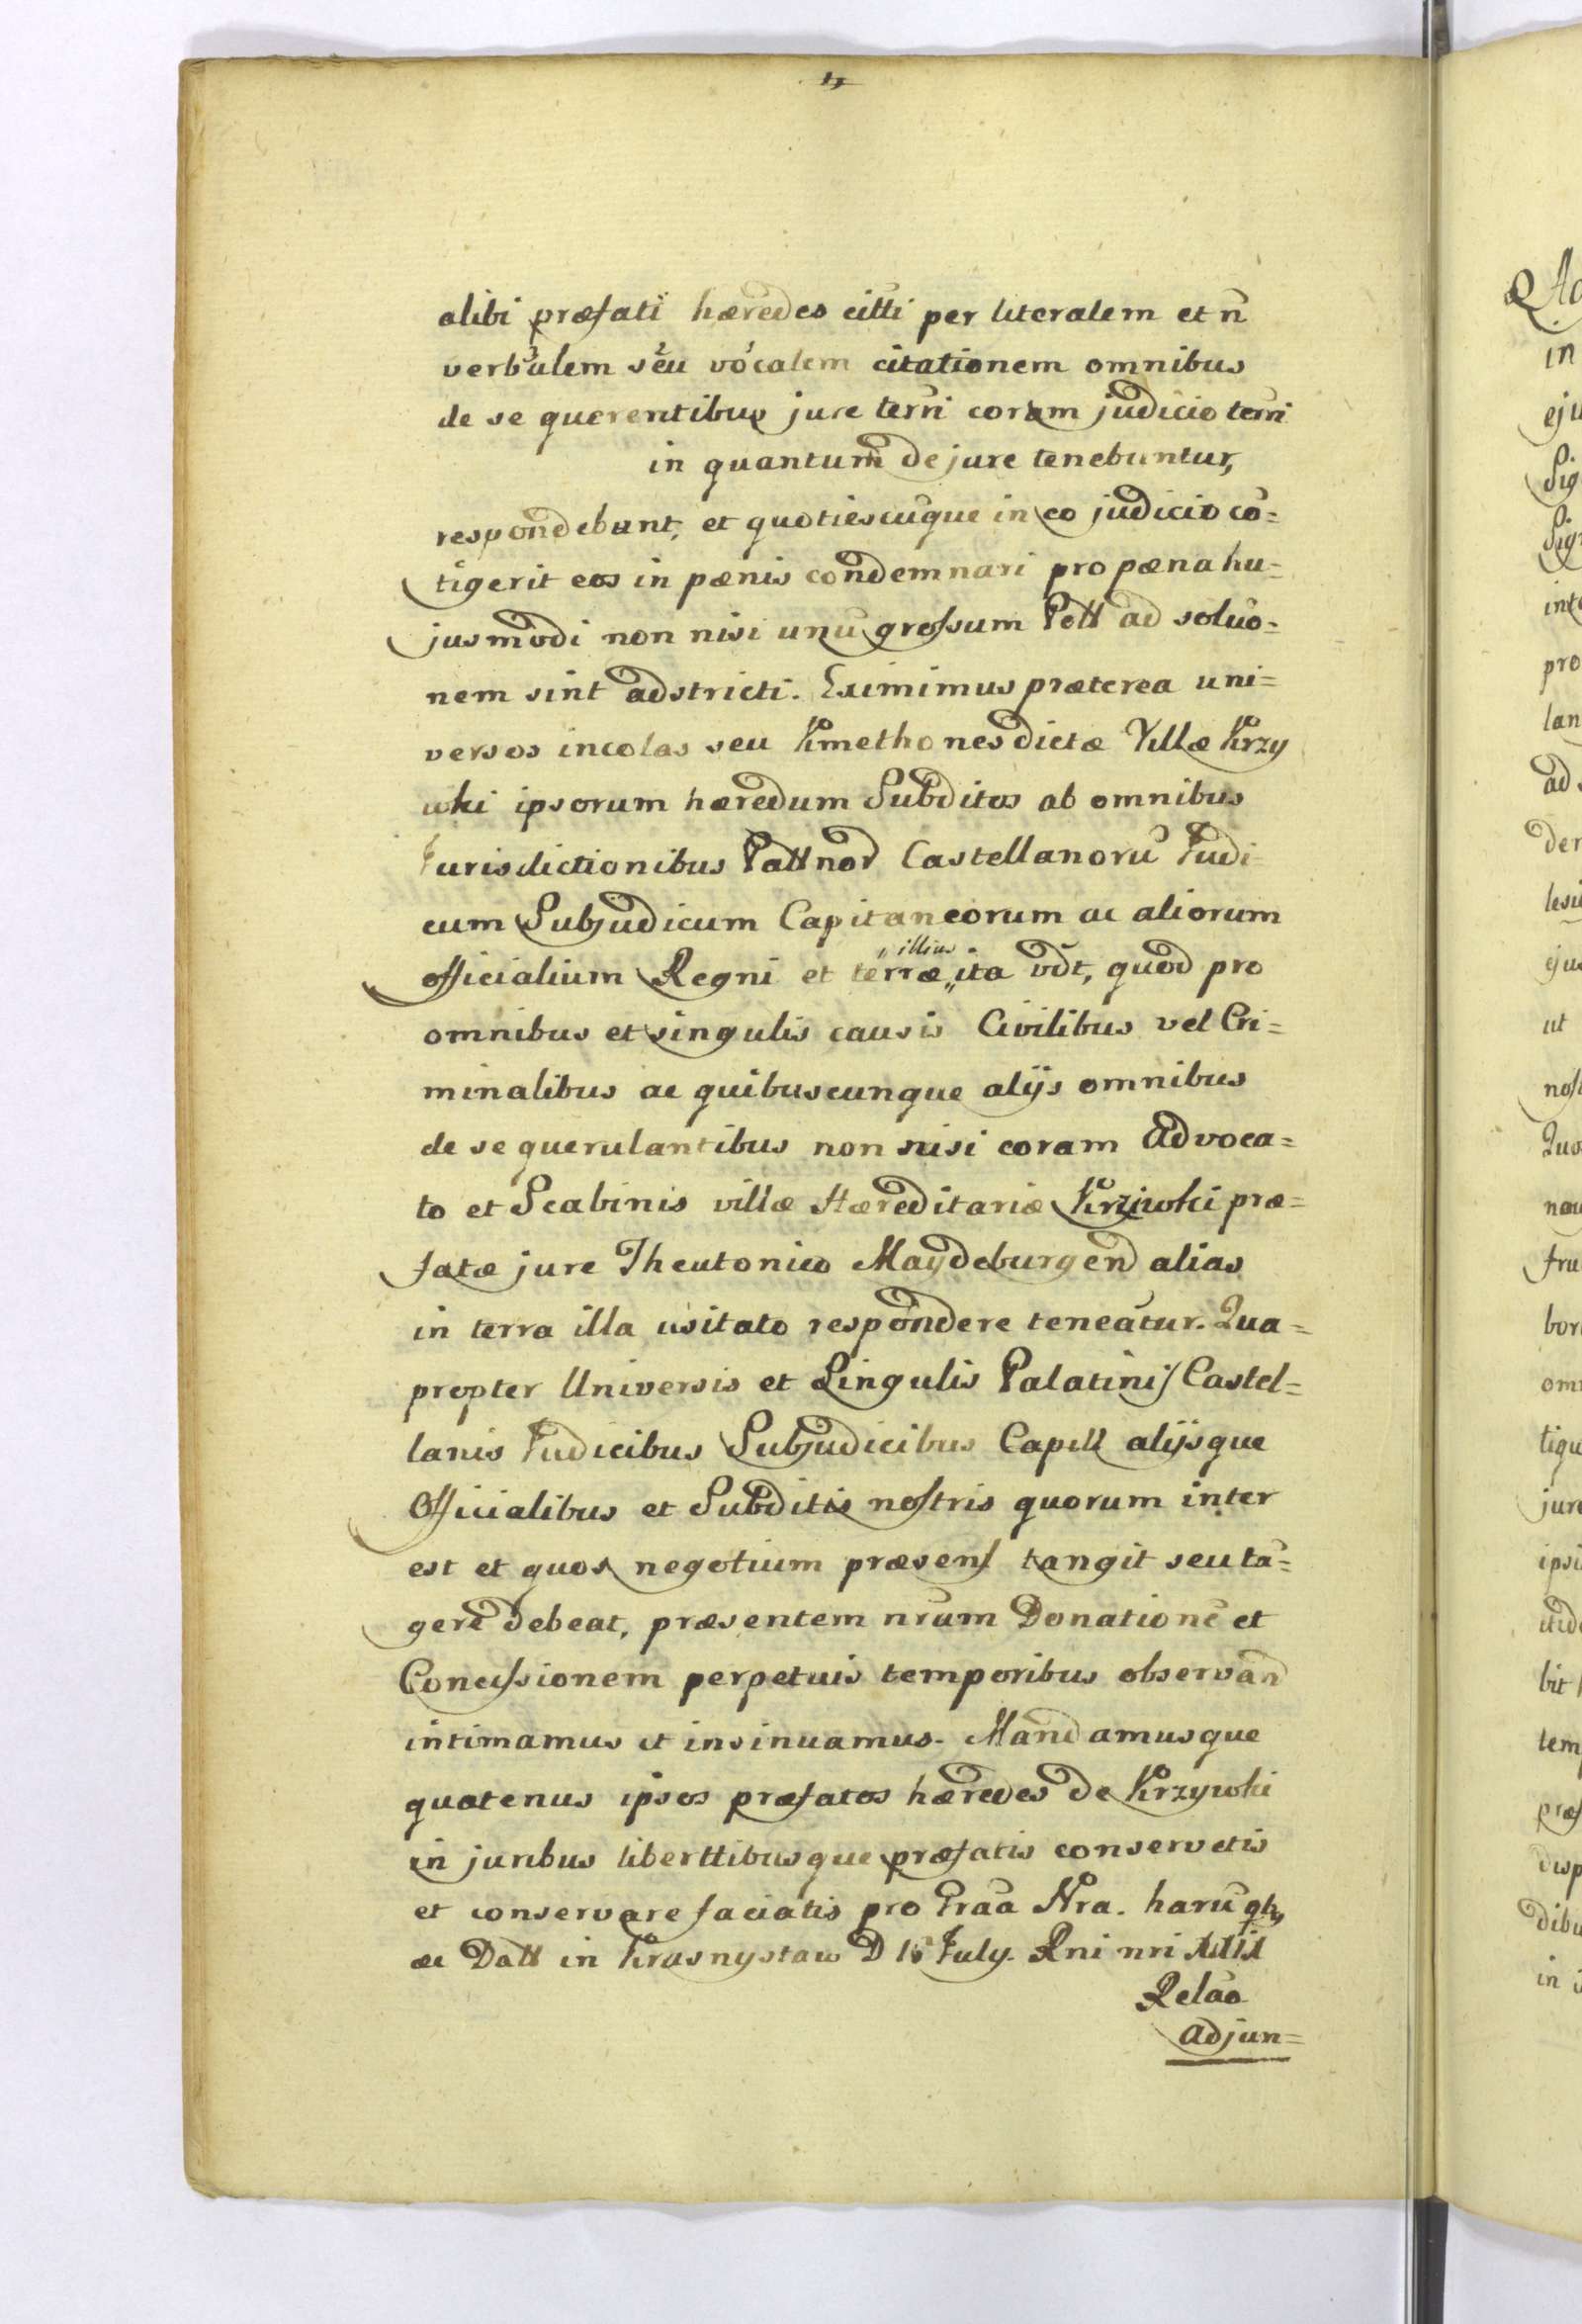 alibi præfati hæredes citti per literalem et n̄
verbalem seu vocalem citationem omnibus
de se querentibus jure terri coram judicio terri
in quantum de jure tenebuntur,
respondebunt, et quotiescuq̄ue in eo judicio cō=
tigerit eos in pænis condemnari pro pæna hu=
jusmodi non nisi unū grossum Poll ad soluo=
nem sint adstricti. Eximimus præterea uni=
versos incolas seu Kmethones dictæ Villæ Krzy
wki ipsorum hæredum Subditos ab omnibus
Jurisdictionibus Pallnor Castellanorū Judi=
cum Subjudicum Capitaneorum ac aliorum
officialium Regni et terræ „illius„ ita vdt, quod pro
omnibus et singulis causis Civilibus vel Cri=
minalibus ac quibuscunque alijs omnibus
de se querulantibus non nisi coram Advoca=
to et Scabinis villæ Hæreditariæ Krziwki præ=
fatæ jure Theutonico Maydeburgend alias
in terra illa usitato respondere teneātur. Qua=
propter Universis et Singulis Palatinis Castel=
lanis Judicibus Subjudicibus Capill alijsque
Officialibus et Subditis nostris quorum inter
est et quos negotium præsens tangit seu tā=
gere debeat, præsentem nrum Donationē et
Concessionem perpetuis temporibus observan̄
intimamus et insinuamus. Mandamusque
quatenus ipsos præfatos hæredes de Krzywki
in juribus liberttibusque præfatis conservetis
et conservare faciatis pro Graā Nra. harū
ac Datt in Krasnystaw D July. Rni nri
Relāo
adjun=